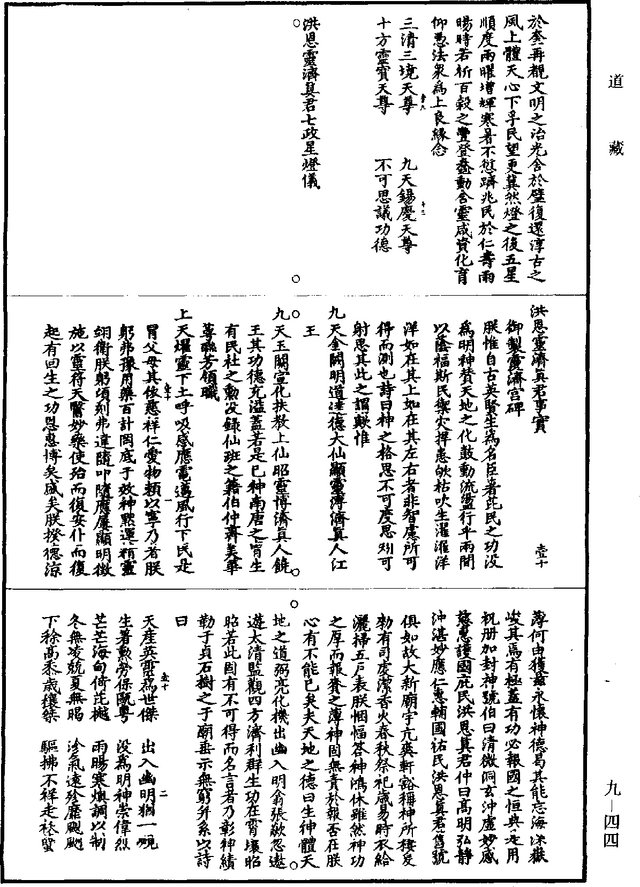 道藏
於奎再覩文明之治光含於璧復還淳古之
風上體天心下孚民望更冀然燈之後五星
順度兩曜增輝寒暑不愆躋兆民於仁壽雨
暘時若祈百穀之豐登蠢動含靈咸資化育
仰憑法衆爲上良緣念
三清三境天尊 九天錫慶天尊
十方靈寶天尊 不可思議功德
洪恩靈濟真君七政星燈儀
洪恩靈濟真君事實
御製靈濟宮碑
朕惟自古英賢生爲名臣著芘民之功没
爲明神贊天地之化鼓動流盪行乎兩間
以隂福斯民禦灾捍患歘枯吹生濯濯洋
洋如在其上如在其左右者非智慮所可
得而測也詩曰神之格思不可度思矧可
射思其此之謂歟惟
九天金闕明道達德大仙顯靈溥濟真人江
王
九天玉闕宣化扶教上仙昭靈博濟真人饒
王其功德充溢蓋若是已神南唐之胄生
有民社之勳没録仙班之籍伯仲齊美華
萼聯芳領職
上天燿靈下土呼吸感應電邁風行下民是
冒父母其倐慈祥仁愛物賴以寧乃者朕
躬弗豫用藥百計罔底于效神默運精靈
翊衛朕躬頃刻弗違隨叩隨應屢顯明徴
施以靈符天醫妙藥使殆而復安仆而復
起有回生之功恩惠博矣盛矣朕揆德涼
薄何由獲兹永懷神德曷其能忘海深嶽
峻其爲有極蓋有功必報國之恒典是用
祝册加封神號伯曰清微洞玄沖虚妙感
慈惠護國庇民洪恩真君仲曰高明弘静
沖湛妙應仁惠輔國祐民洪恩真君舊號
俱如故大新廟宇亢爽軒豁稱神所棲爰
勅有司虔潔香火春秋祭祀歲易時衣給
灑掃五戶表朕悃愊答神鴻休雖然神功
之厚而報賽之薄神固無責於報否在朕
心有不能已矣夫天地之德曰生神體天
地之道弼亮化機出幽入明翕張歘忽遨
遊太清監觀四方濟利群生功在霄壤昭
昭若此固有不可得而名言者乃彰神績
勒于貞石樹之于廟垂示無窮并系以詩
曰
天産英靈爲世傑 出入幽明猶一覕
生著勲勞保甌粤 没爲明神崇偉烈
芒芒海甸倚芘樾 雨暘寒燠調以制
冬無凌兢夏無暍 沴氣遠殄塵飇飇
下徐高黍歲穰桀 驅拂不祥走袄孼
九—四四